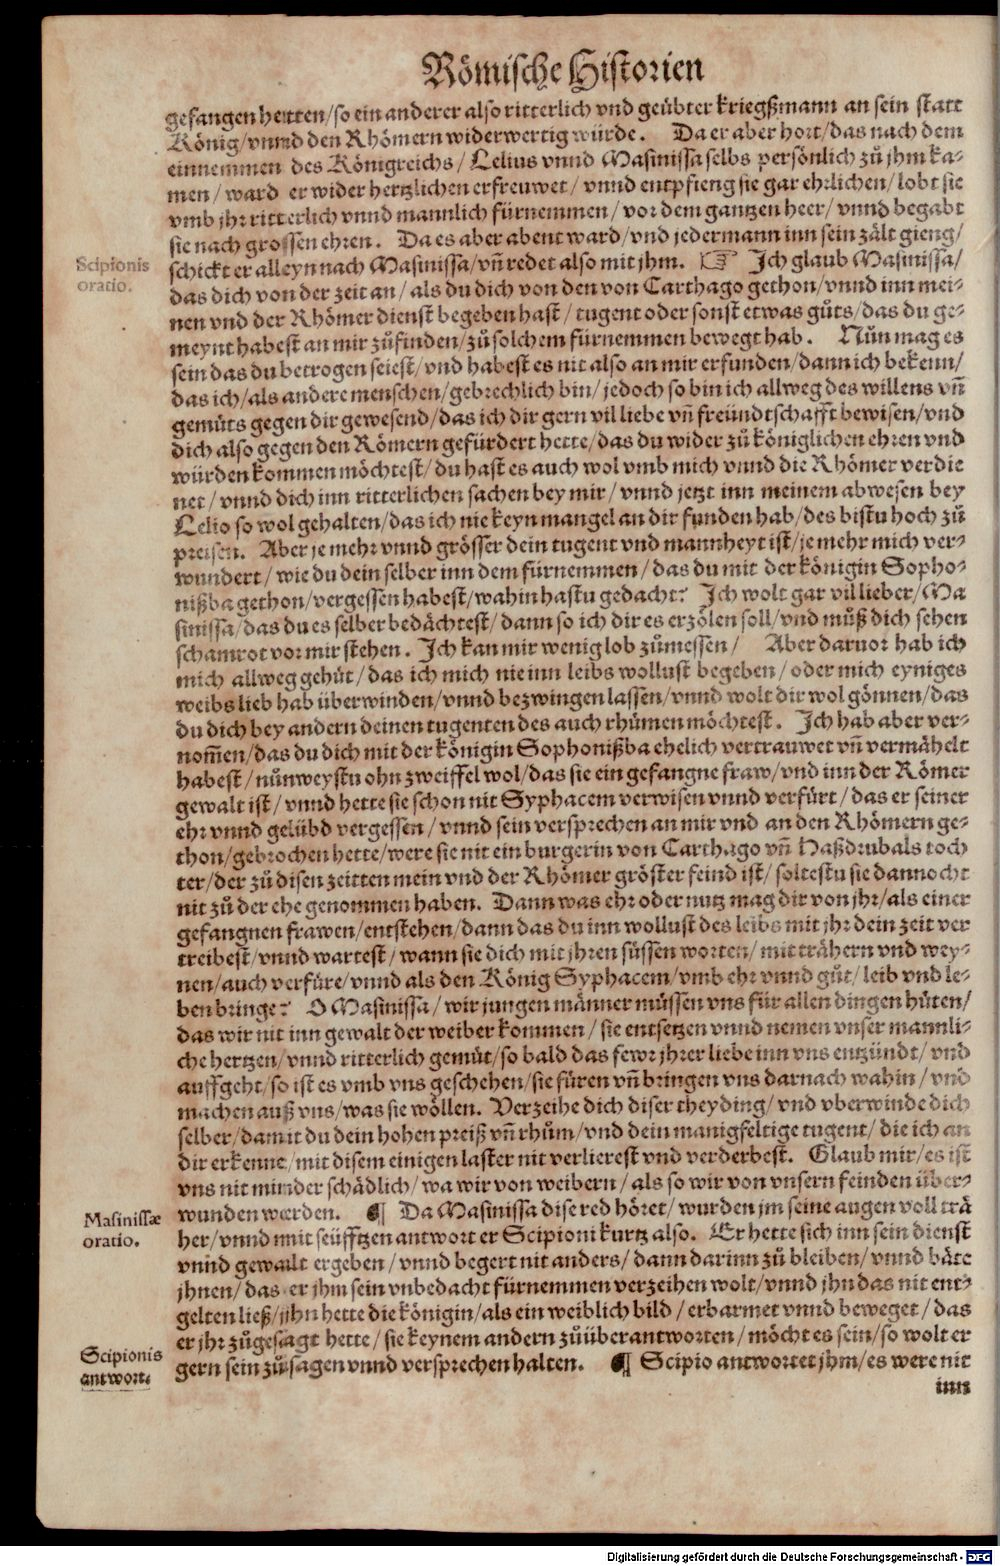 Römische Historien
gefangen hetten/so ein anderer also ritterlich vnd geübter kriegßmann an sein statt
König/vnnd den Rhömern widerwertig würde. Da er aber hort/das nach dem
einnemmen des Königreichs/Lelius vnnd Masinissa selbs persönlich zů jhm ka-
men/ward er wider hertzlichen erfreuwet/vnnd entpfieng sie gar ehrlichen/lobt sie
vmb jhr ritterlich vnnd mannlich fürnemmen/vor dem gantzen heer/vnnd begabt
sie nach grossen ehren. Da es aber abent ward/vnd jedermann inn sein zält gieng/
Scipionis
oratio.
schickt er alleyn nach Masinissa/vñ redet also mit jhm. ☞ Ich glaub Masinissa/
das dich von der zeit an/als du dich von den von Carthago gethon/vnnd inn mei-
nen vnd der Rhömer dienst begeben hast/tugent oder sonst etwas gůts/das du ge-
meynt habest an mir zůfinden/zů solchem fürnemmen bewegt hab. Nůn mag es
sein das du betrogen seiest/vnd habest es nit also an mir erfunden/dann ich bekenn/
das ich/als andere menschen/gebrechlich bin/jedoch so bin ich allweg des willens vñ
gemüts gegen dir gewesend/das ich dir gern vil liebe vñ freündtschafft bewisen/vnd
dich also gegen den Römern gefürdert hette/das du wider zů königlichen ehren vnd
würden kommen möchtest/du hast es auch wol vmb mich vnnd die Rhömer verdie
net/vnnd dich inn ritterlichen sachen bey mir/vnnd jetzt inn meinem abwesen bey
Lelio so wol gehalten/das ich nie keyn mangel an dir funden hab/des bistu hoch zů
preisen. Aber je mehr vnnd grösser dein tugent vnd mannheyt ist/je mehr mich ver-
wundert/wie du dein selber inn dem fürnemmen/das du mit der königin Sopho-
nißba gethon/vergessen habest/wahin hastu gedacht? Ich wolt gar vil lieber/Ma
sinissa/das du es selber bedächtest/dann so ich dir es erzölen soll/vnd můß dich sehen
schamrot vor mir stehen. Ich kan mir wenig lob zůmessen/ Aber daruor hab ich
mich allweg gehüt/das ich mich nie inn leibs wollust begeben/oder mich eyniges
weibs lieb hab überwinden/vnnd bezwingen lassen/vnnd wolt dir wol gönnen/das
du dich bey andern deinen tugenten des auch rhümen möchtest. Ich hab aber ver-
nom̃en/das du dich mit der königin Sophonißba ehelich vertrauwet vñ vermähelt
habest/nůn weystu ohn zweiffel wol/das sie ein gefangne fraw/vnd inn der Römer
gewalt ist/vnnd hette sie schon nit Syphacem verwisen vnnd verfürt/das er seiner
ehr vnnd gelübd vergessen/vnnd sein versprechen an mir vnd an den Rhömern ge-
thon/gebrochen hette/were sie nit ein burgerin von Carthago vñ Haßdrubals toch
ter/der zů disen zeitten mein vnd der Rhömer gröster feind ist/soltestu sie dannocht
nit zů der ehe genommen haben. Dann was ehr oder nutz mag dir von jhr/als einer
gefangnen frawen/entstehen/dann das du inn wollust des leibs mit jhr dein zeit ver
treibest/vnnd wartest/wann sie dich mit jhren süssen worten/mit trähern vnd wey-
nen/auch verfüre/vnnd als den König Syphacem/vmb ehr vnnd gůt/leib vnd le-
ben bringe? O Masinissa/wir jungen männer müssen vns für allen dingen hüten/
das wir nit inn gewalt der weiber kommen/sie entsetzen vnnd nemen vnser mannli-
che hertzen/vnnd ritterlich gemüt/so bald das fewr jhrer liebe inn vns entzündt/vnd
auffgeht/so ist es vmb vns geschehen/sie füren vñ bringen vns darnach wahin/vnd
machen auß vns/was sie wöllen. Verzeihe dich diser theyding/vnd vberwinde dich
selber/damit du dein hohen preiß vñ rhům/vnd dein manigfeltige tugent/die ich an
dir erkenne/mit disem einigen laster nit verlierest vnd verderbest. Glaub mir/es ist
vns nit minder schädlich/wa wir von weibern/als so wir von vnsern feinden über-
Masinissæ
oratio.
wunden werden. ¶ Da Masinissa dise red höret/wurden jm seine augen voll trä
her/vnnd mit seüfftzen antwort er Scipioni kurtz also. Er hette sich inn sein dienst
vnnd gewallt ergeben/vnnd begert nit anders/dann darinn zů bleiben/vnnd bäte
jhnen/das er jhm sein vnbedacht fürnemmen verzeihen wolt/vnnd jhn das nit ent-
gelten ließ/jhn hette die königin/als ein weiblich bild/erbarmet vnnd beweget/das
er jhr zůgesagt hette/sie keynem andern zů überantworten/möcht es sein/so wolt er
Scipionis
antwort.
gern sein zůsagen vnnd versprechen halten. ¶ Scipio antwortet jhm/es were nit
inn
Digitalisierung gefördert durch die Deutsche Forschungsgemeinschaft - DFG